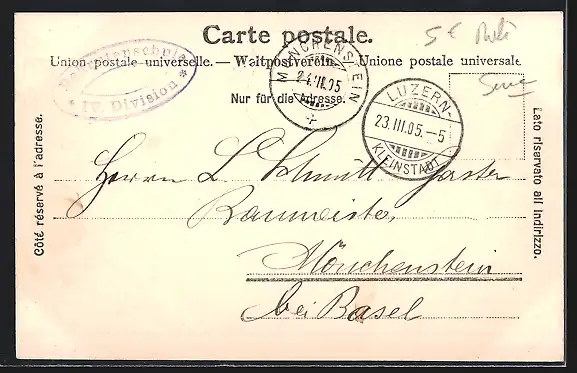 Carte postale.
Union postale universelle. — Weltpostverein. — Unione postale universale
Nur für die Adresse.
Rekrutenschule
* IV. Division *
MÜNCHENSTEIN
24.III.05
LUZERN-
23.III.05.-5
KLEINSTADT
5 €
Côté réservé à l'adresse.
Lato riservato all' indirizzo.
Herrn L Schmitt
Baumeister,
Mönchenstein
bei Basel